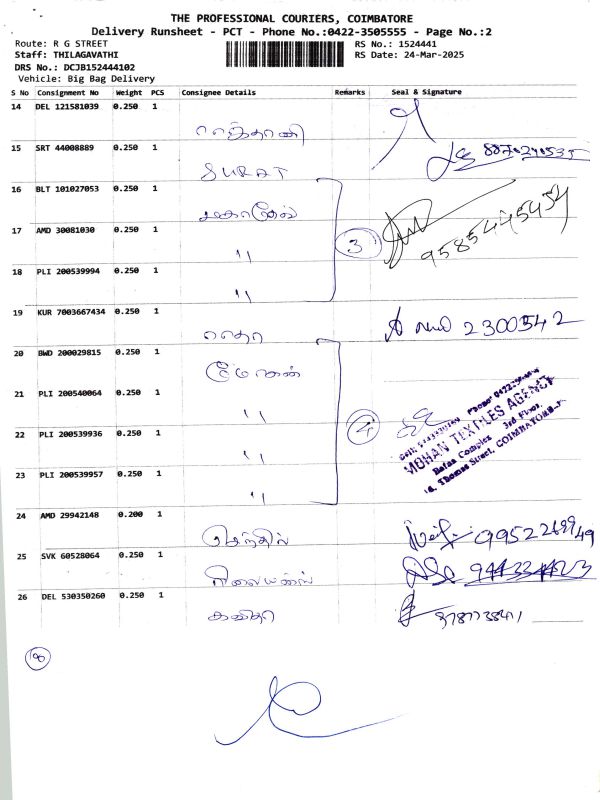 THE PROFESSIONAL COURIERS, COIMBATORE
Delivery Runsheet - PCT - Phone No.:0422-3505555 - Page No.:2
Route: R G STREET
Staff: THILAGAVATHI
DRS No.: DCJB152444102
Vehicle: Big Bag Delivery
RS No.: 1524441
RS Date: 24-Mar-2025
S No Consignment No Weight PCS Consignee Details Remarks Seal & Signature
14 DEL 121581039 0.250 1
15 SRT 44008889 0.250 1
SURAT
16 BLT 101027053 0.250 1
17 AMD 30081030 0.250 1
"
3
9585445454
18 PLI 200539994 0.250 1
"
19 KUR 7003667434 0.250 1
2300542
20 BWD 200029815 0.250 1
21 PLI 200540064 0.250 1
"
4
MOHAN TEXTILES AGENCY
Balaa Complex 3rd Floor,
Thomas Street, COIMBATORE
22 PLI 200539936 0.250 1
"
23 PLI 200539957 0.250 1
"
24 AMD 29942148 0.200 1
செந்தில்
25 SVK 60528064 0.250 1
26 DEL 530350260 0.250 1
கவிதா
8